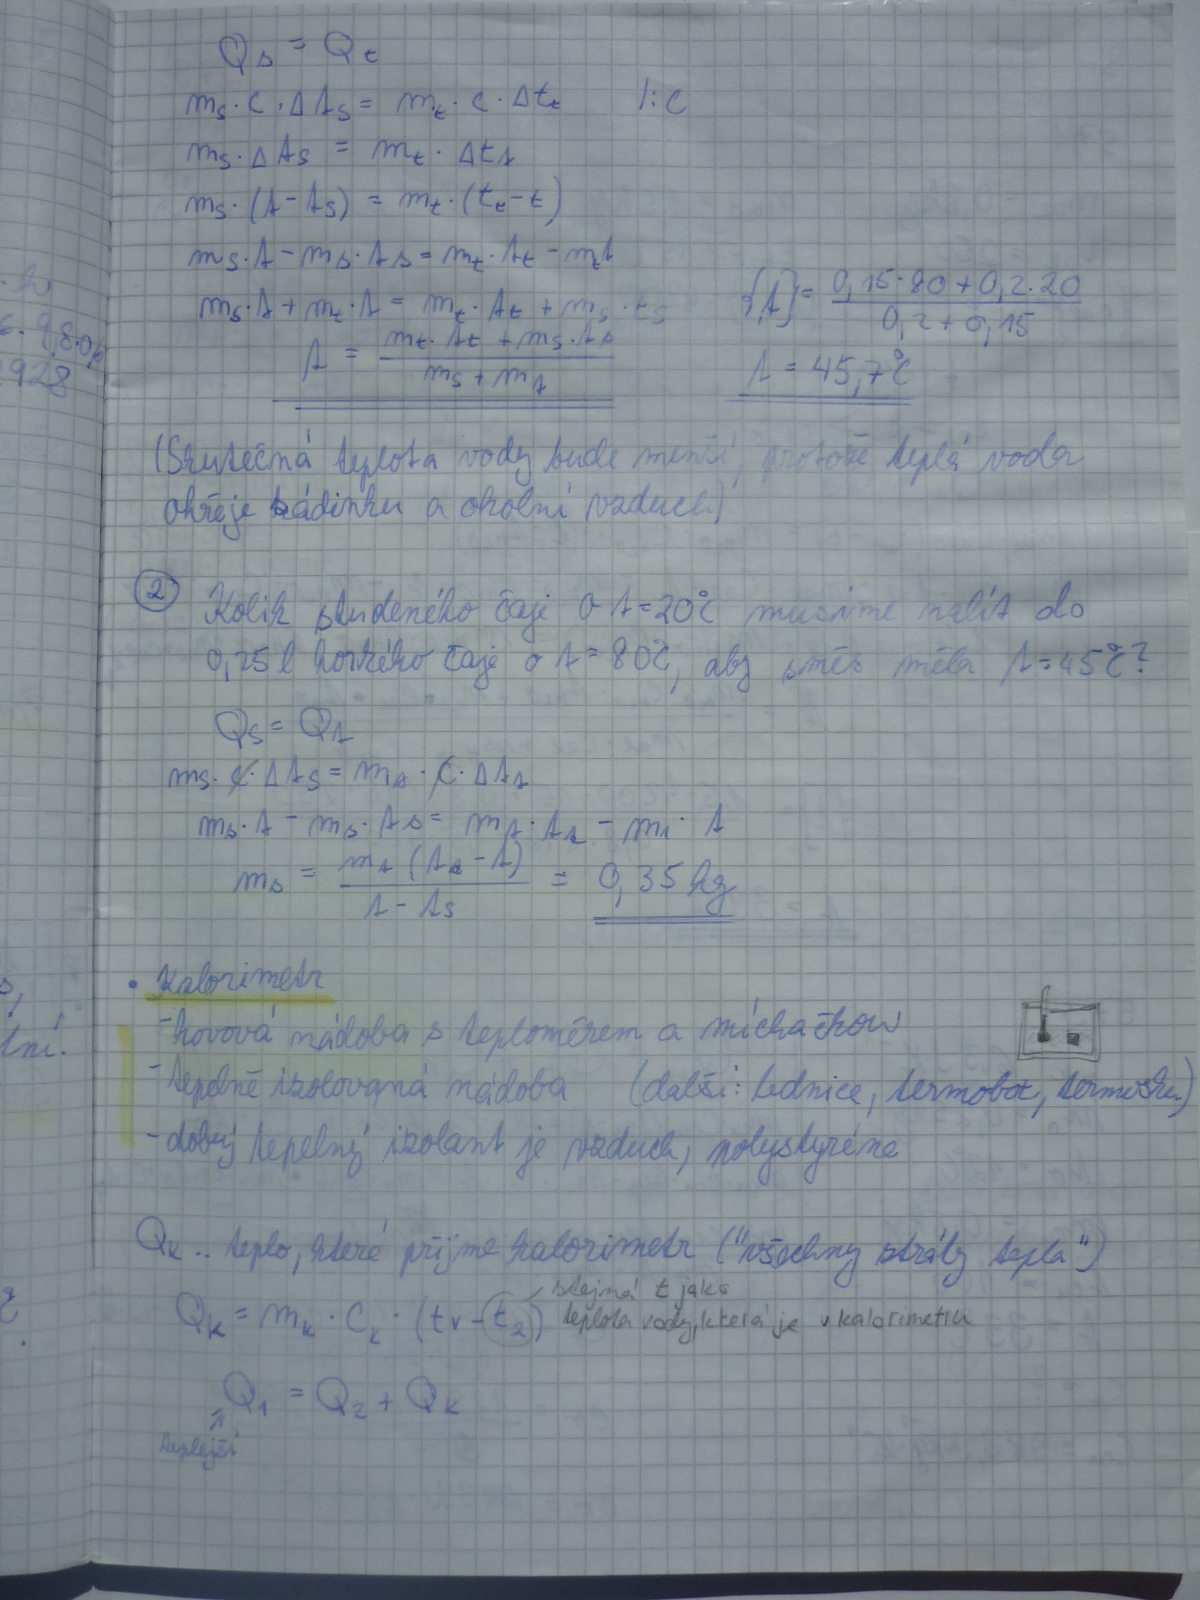 Qs = Qt
ms · c · Δts = mt · c · Δtt /:c
ms · Δts = mt · Δtt
ms · (t - ts) = mt · (tt - t)
ms · t - ms · ts = mt · tt - mt t
ms · t + mt · t = mt · tt + ms · ts
t = (mt · tt + ms · ts) / (ms + mt)
{t} = (0,15·80 + 0,2·20) / (0,2 + 0,15)
t = 45,7°C
(Skutečná teplota vody bude menší, protože teplá voda
ohřeje kádinku a okolní vzduch)
② Kolik studeného čaje o t = 20°C musíme nalít do
0,25 l horkého čaje o t = 80°C, aby směs měla t = 45°C?
Qs = Qt
ms · c · Δts = mt · c · Δtt
ms · t - ms · ts = mt · tt - mt · t
ms = mt (tt - t) / (t - ts) = 0,35 kg
• Kalorimetr
- kovová nádoba s teploměrem a míchačkou
- tepelně izolovaná nádoba (další: lednice, termobox, termoska)
- dobrý tepelný izolant je vzduch, polystyréne
Qk .. teplo, které přijme kalorimetr ("všechny ztráty tepla")
stejná t jako
Qk = mk · ck · (tv - t2) teplota vody, která je v kalorimetru
Q1 = Q2 + Qk
teplejší
9,8·0,
928